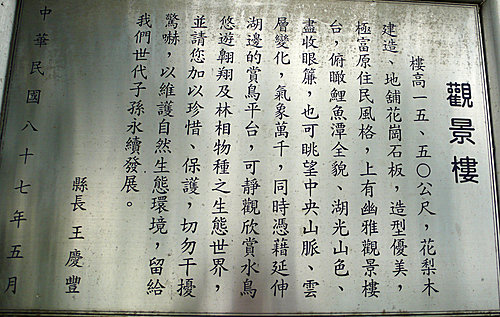 觀景樓
樓高一五、五○公尺，花梨木
建造、地舖花崗石板，造型優美，
極富原住民風格，上有幽雅觀景樓
台，俯瞰鯉魚潭全貌、湖光山色、
盡收眼簾，也可眺望中央山脈、雲
層變化，氣象萬千，同時憑藉延伸
湖邊的賞鳥平台，可靜觀欣賞水鳥
悠遊翱翔及林相物種之生態世界，
並請您加以珍惜、保護，切勿干擾
驚嚇，以維護自然生態環境，留給
我們世代子孫永續發展。
縣長 王慶豐
中華民國八十七年五月